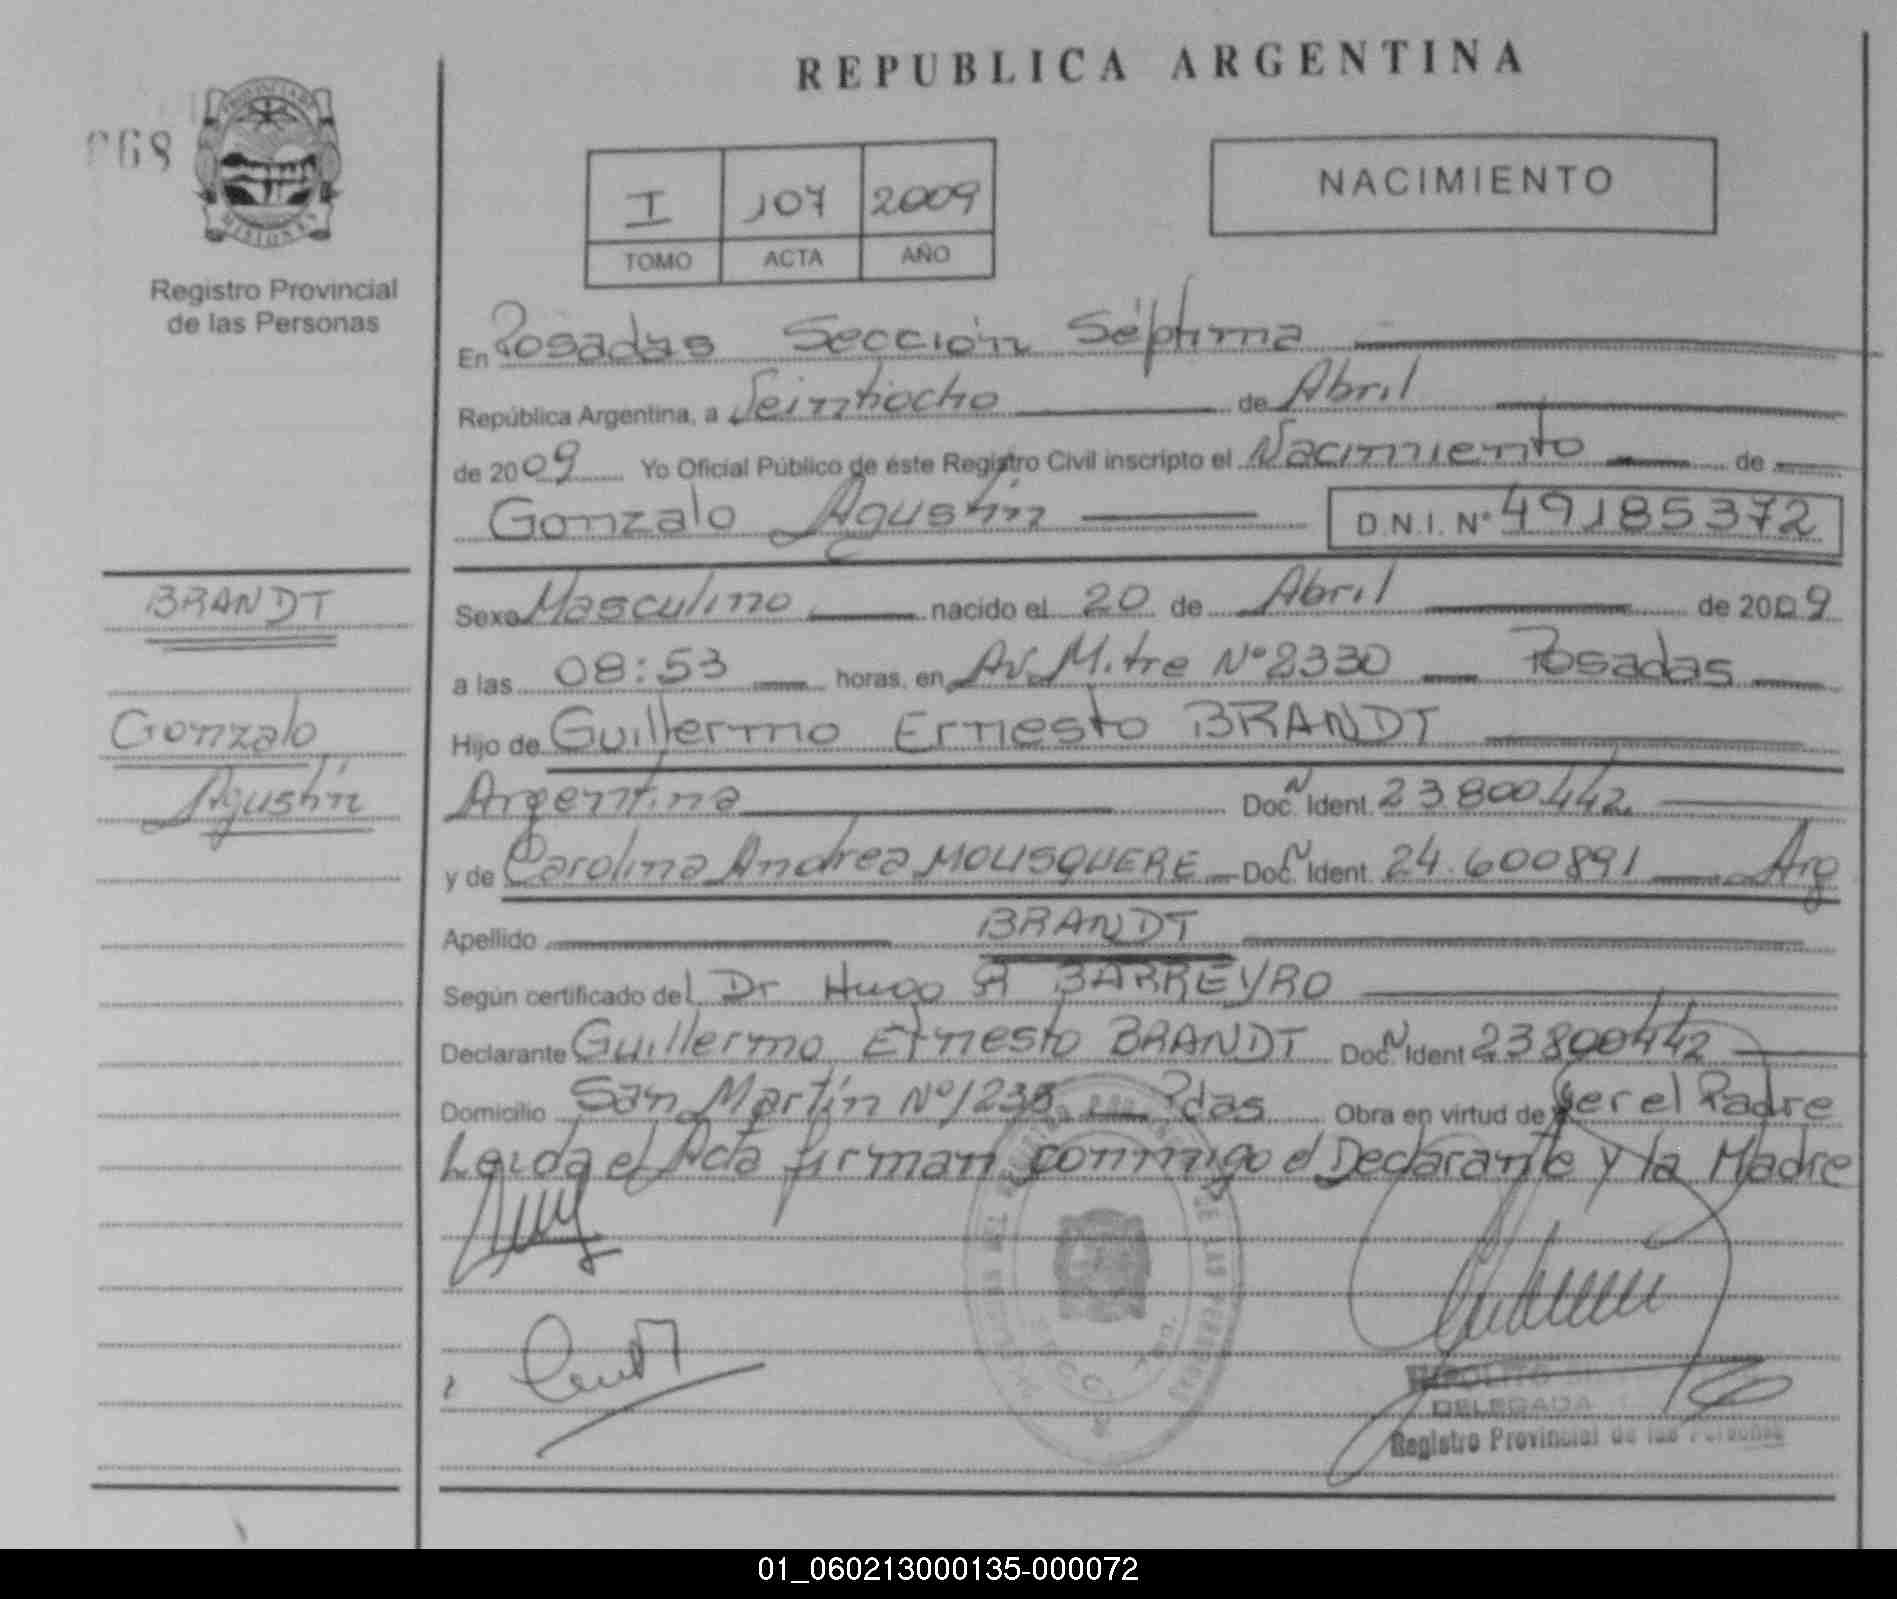 REPUBLICA ARGENTINA
068
PROVINCIA DE
MISIONES
Registro Provincial
de las Personas
I 107 2009
TOMO ACTA AÑO
NACIMIENTO
En Posadas Sección Séptima
República Argentina, a Veintiocho de Abril
de 2009 Yo Oficial Público de éste Registro Civil inscripto el Nacimiento de
Gonzalo Agustín D.N.I. Nº 49185372
BRANDT
Gonzalo
Agustín
Sexo Masculino nacido el 20 de Abril de 2009
a las 08:53 horas, en Av. Mitre Nº 2330 Posadas
Hijo de Guillermo Ernesto BRANDT
Argentina Doc. N Ident. 23800442
y de Carolina Andrea MOUSQUERE Doc. N Ident. 24.600891 Arg
Apellido BRANDT
Según certificado del Dr Hugo A BARREYRO
Declarante Guillermo Ernesto BRANDT Doc. N Ident 23800442
Domicilio San Martín Nº 1235 Pdas Obra en virtud de Ser el Padre
Leida el Acta firman conmigo el Declarante y la Madre
DELEGADA
Registro Provincial de las Personas
01_060213000135-000072